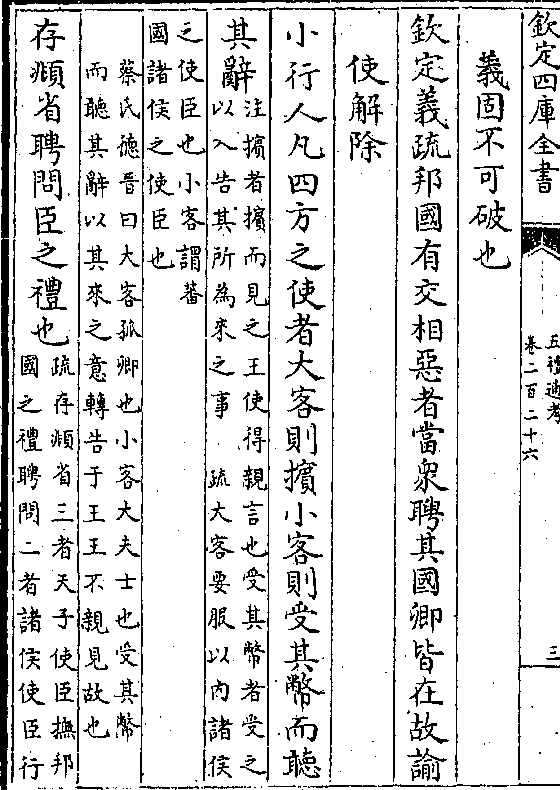 欽定四庫全書
五禮通考
卷二百二十六
三
義固不可破也
欽定義疏邦國有交相惡者當衆聘其國卿皆在故諭
使解除
小行人凡四方之使者大客則擯小客則受其幣而聽
其辭
注擯者擯而見之王使得親言也受其幣者受之
以入告其所為來之事 疏大客要服以内諸侯
之使臣也小客謂蕃
國諸侯之使臣也
蔡氏德晉曰大客孤卿也小客大夫士也受其幣
而聽其辭以其來之意轉告于王王不親見故也
存頫省聘問臣之禮也
疏存頫省三者天子使臣撫邦
國之禮聘問二者諸侯使臣行